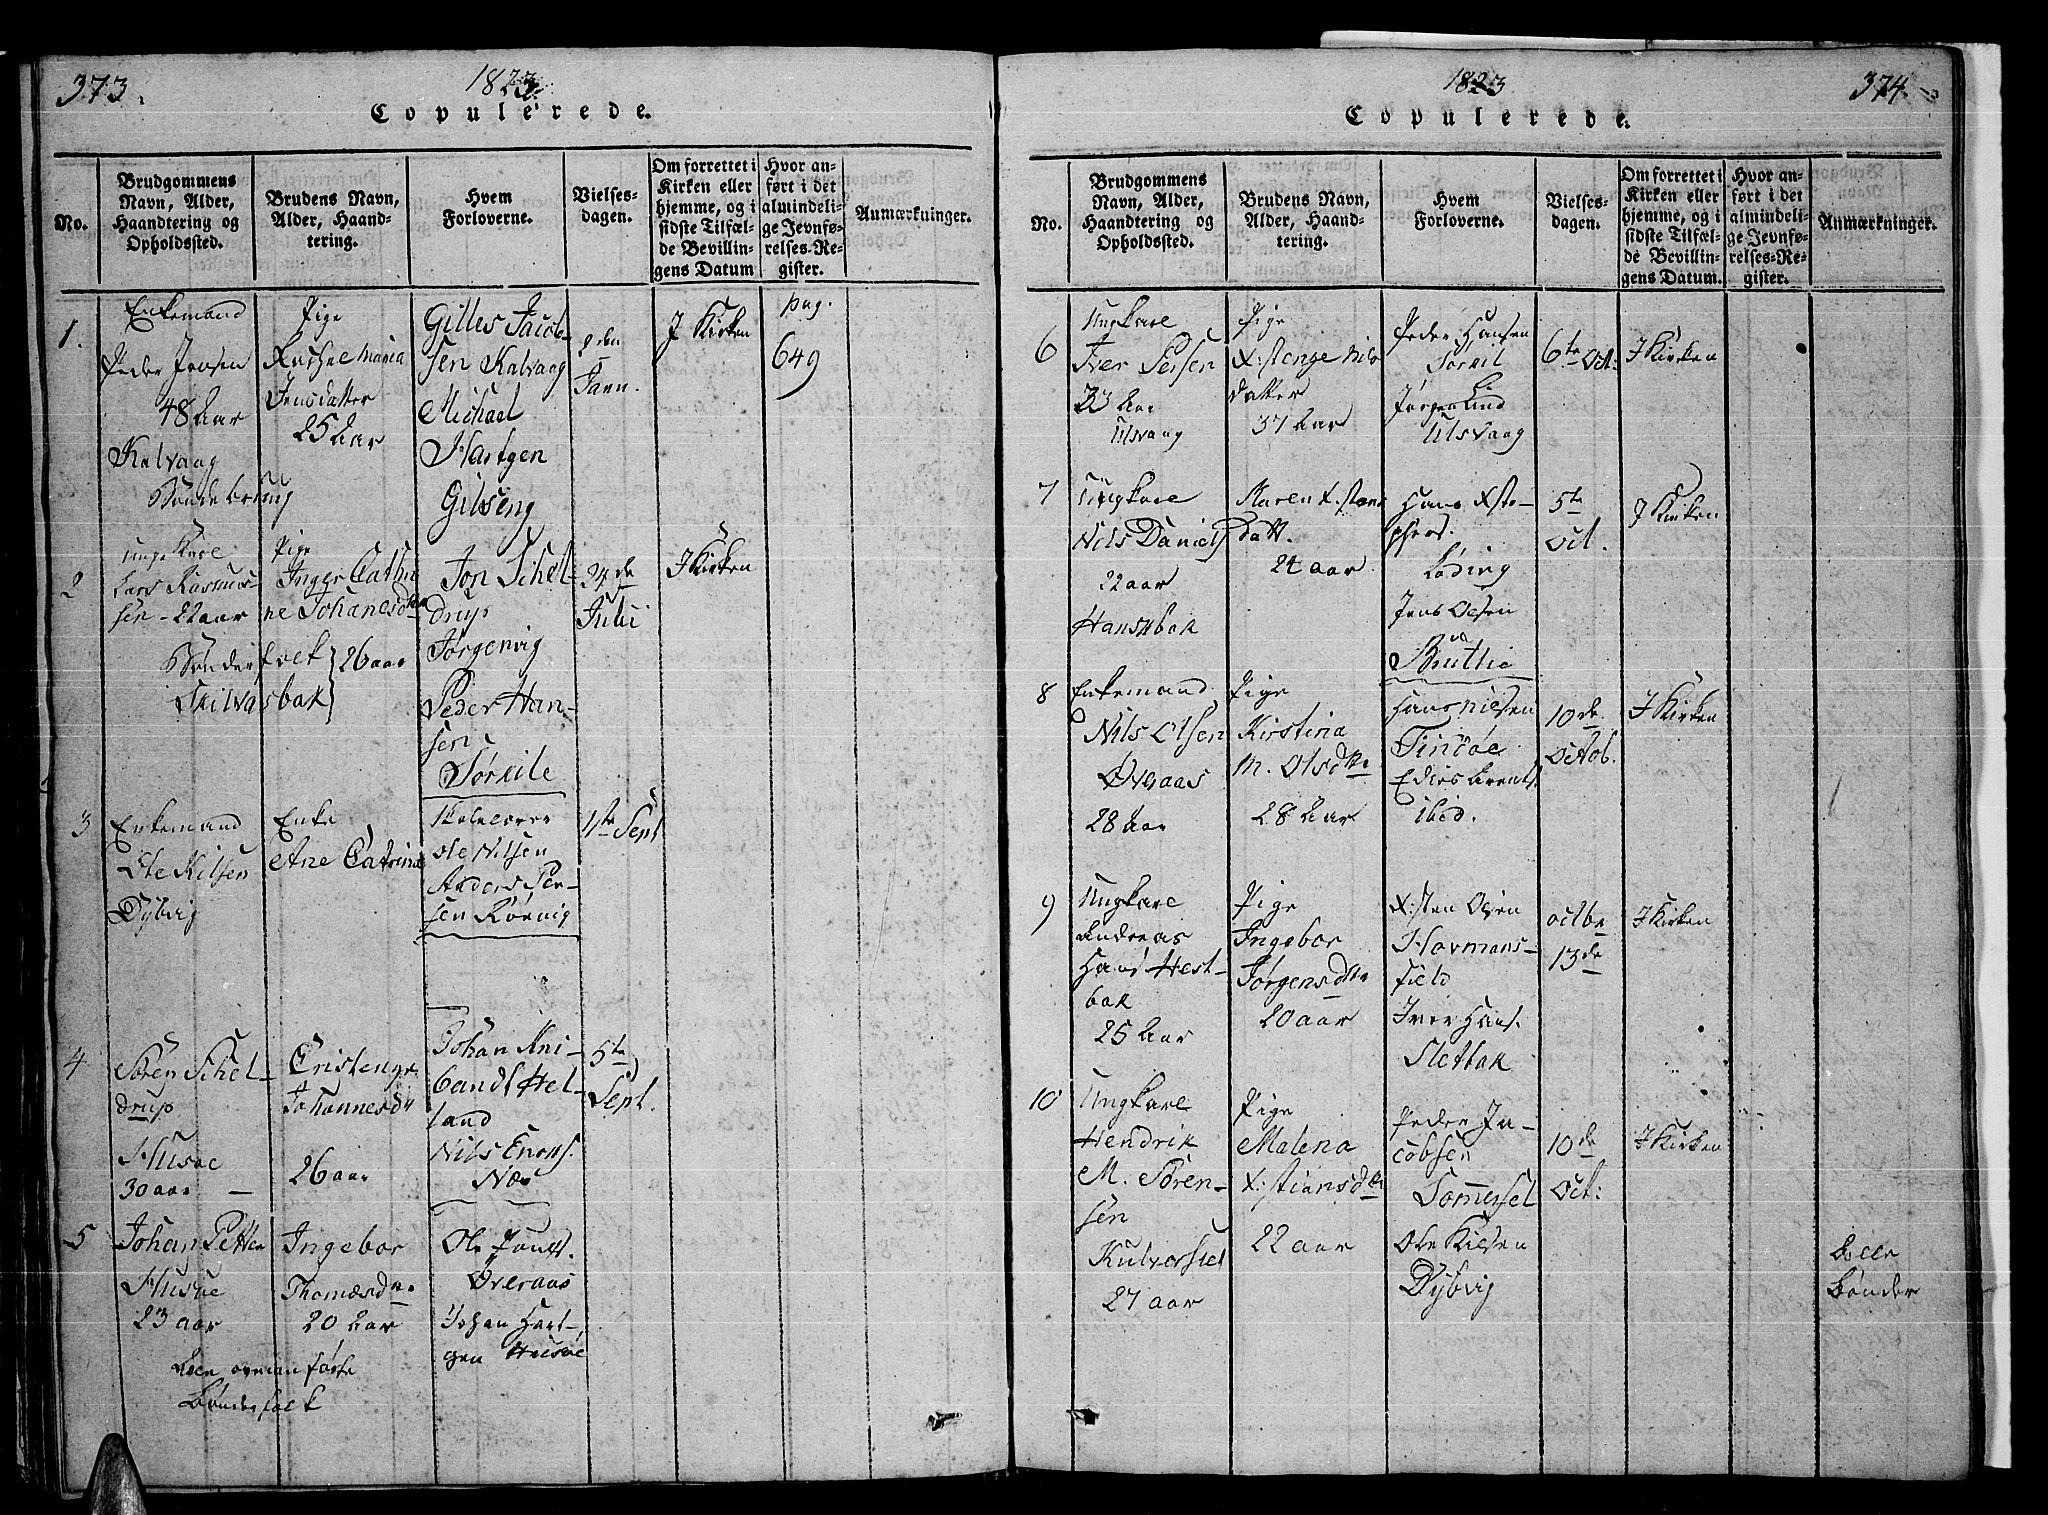 373.
1823.
Copulerede.
No.
Brudgommens Navn, Alder, Haandtering og Opholdssted.
Brudens Navn, Alder, Haandtering.
Hvem Forloverne.
Vielsesdagen.
Om forrettet i Kirken eller hjemme, og i sidste Tilfælde Bevillingens Datum
Hvor anført i det almindelige Jevnførelses-Register.
Anmærkninger.
1.
Enkemand
Peder Jensen
48 Aar
Kalvaag
Pige
Maria
Jensdatter
25 Aar
Gilles Jacob
sen Kalvaag
Michael
Hartgen
Gilseng
2den
Janu.
J Kirken
pag.
649
2
unge Karl
Lars Rasmus-
sen - 22 aar
Bønderfolk
Skilvasbak
Pige
Inger Cathri
ne Johanesdtr
26 aar
Jon Schel-
drup
Jørgenvig
Peder Han-
sen
Sørkile
24de
Julii
J Kirken
3
Enkemand
Ole Kilsen
Dybvig
Enke
Ane Catrina
Skolelærer
Ole Nilsen
Anders Per-
sen Rørvig
11te Sept
4
Søren Schel-
drup
Husøe
30 aar
Cristenge
Johannesdtr
26 aar
Johan Kni-
Hel-
land
Nils Enons.
Næs
5te
Sept.
5
Johan Petter
Husøe
23 aar
Alle ovenanførte
Bønderfolk
Ingebor
Thomæsdtr.
20 Aar
Ole
Øveraas
Johan Hart-
gen Husøe
1823
374.
Copulerede.
No.
Brudgommens Navn, Alder, Haandtering og Opholdssted.
Brudens Navn, Alder, Haandtering.
Hvem Forloverne.
Vielsesdagen.
Om forrettet i Kirken eller hjemme, og i sidste Tilfælde Bevillingens Datum.
Hvor anført i det almindelige Jevnførelses-Register.
Anmærkninger.
6
Ungkarl
Iver Persen
33 Aar
Ulsvaag
Pige
X:stenge Nils
datter
37 Aar
Peder Hansen
Sørkil
Jørgen Lind
Ulsvaag
6te Oct:
J Kirken
7
Ungkarl
Nils Daniels
22 aar
Hanskbak
Maren X:stens
Datt.
24 aar
Hans Xsto-
phers.
Løding
Jens Olsen
5te
Oct.
J Kirken
8
Enkemand
Nils Olsen
Øveraas
28 Aar
Pige
Kirstina
M. Olsdtr
28 Aar
Hans Nilsen
Tindøe
ibid.
10de
Octob.
J Kirken
9
Ungkarl
Andreas
Hans Hest-
bak
25 Aar
Pige
Ingebor
Jørgensdtr
20 aar
X:sten Olsen
Hovmans-
field
Iver Hans.
Slettbak
octbr
13de
J Kirken
10
Ungkarl
Hendrik
M. Søren-
sen
27 aar
Pige
Malena
X:stiansdtr
22 aar
Peder Ja-
cobsen
Sommersel
Ole Kilsen
Dybvig
10de
Oct:
J Kirken
Alle
Bønder